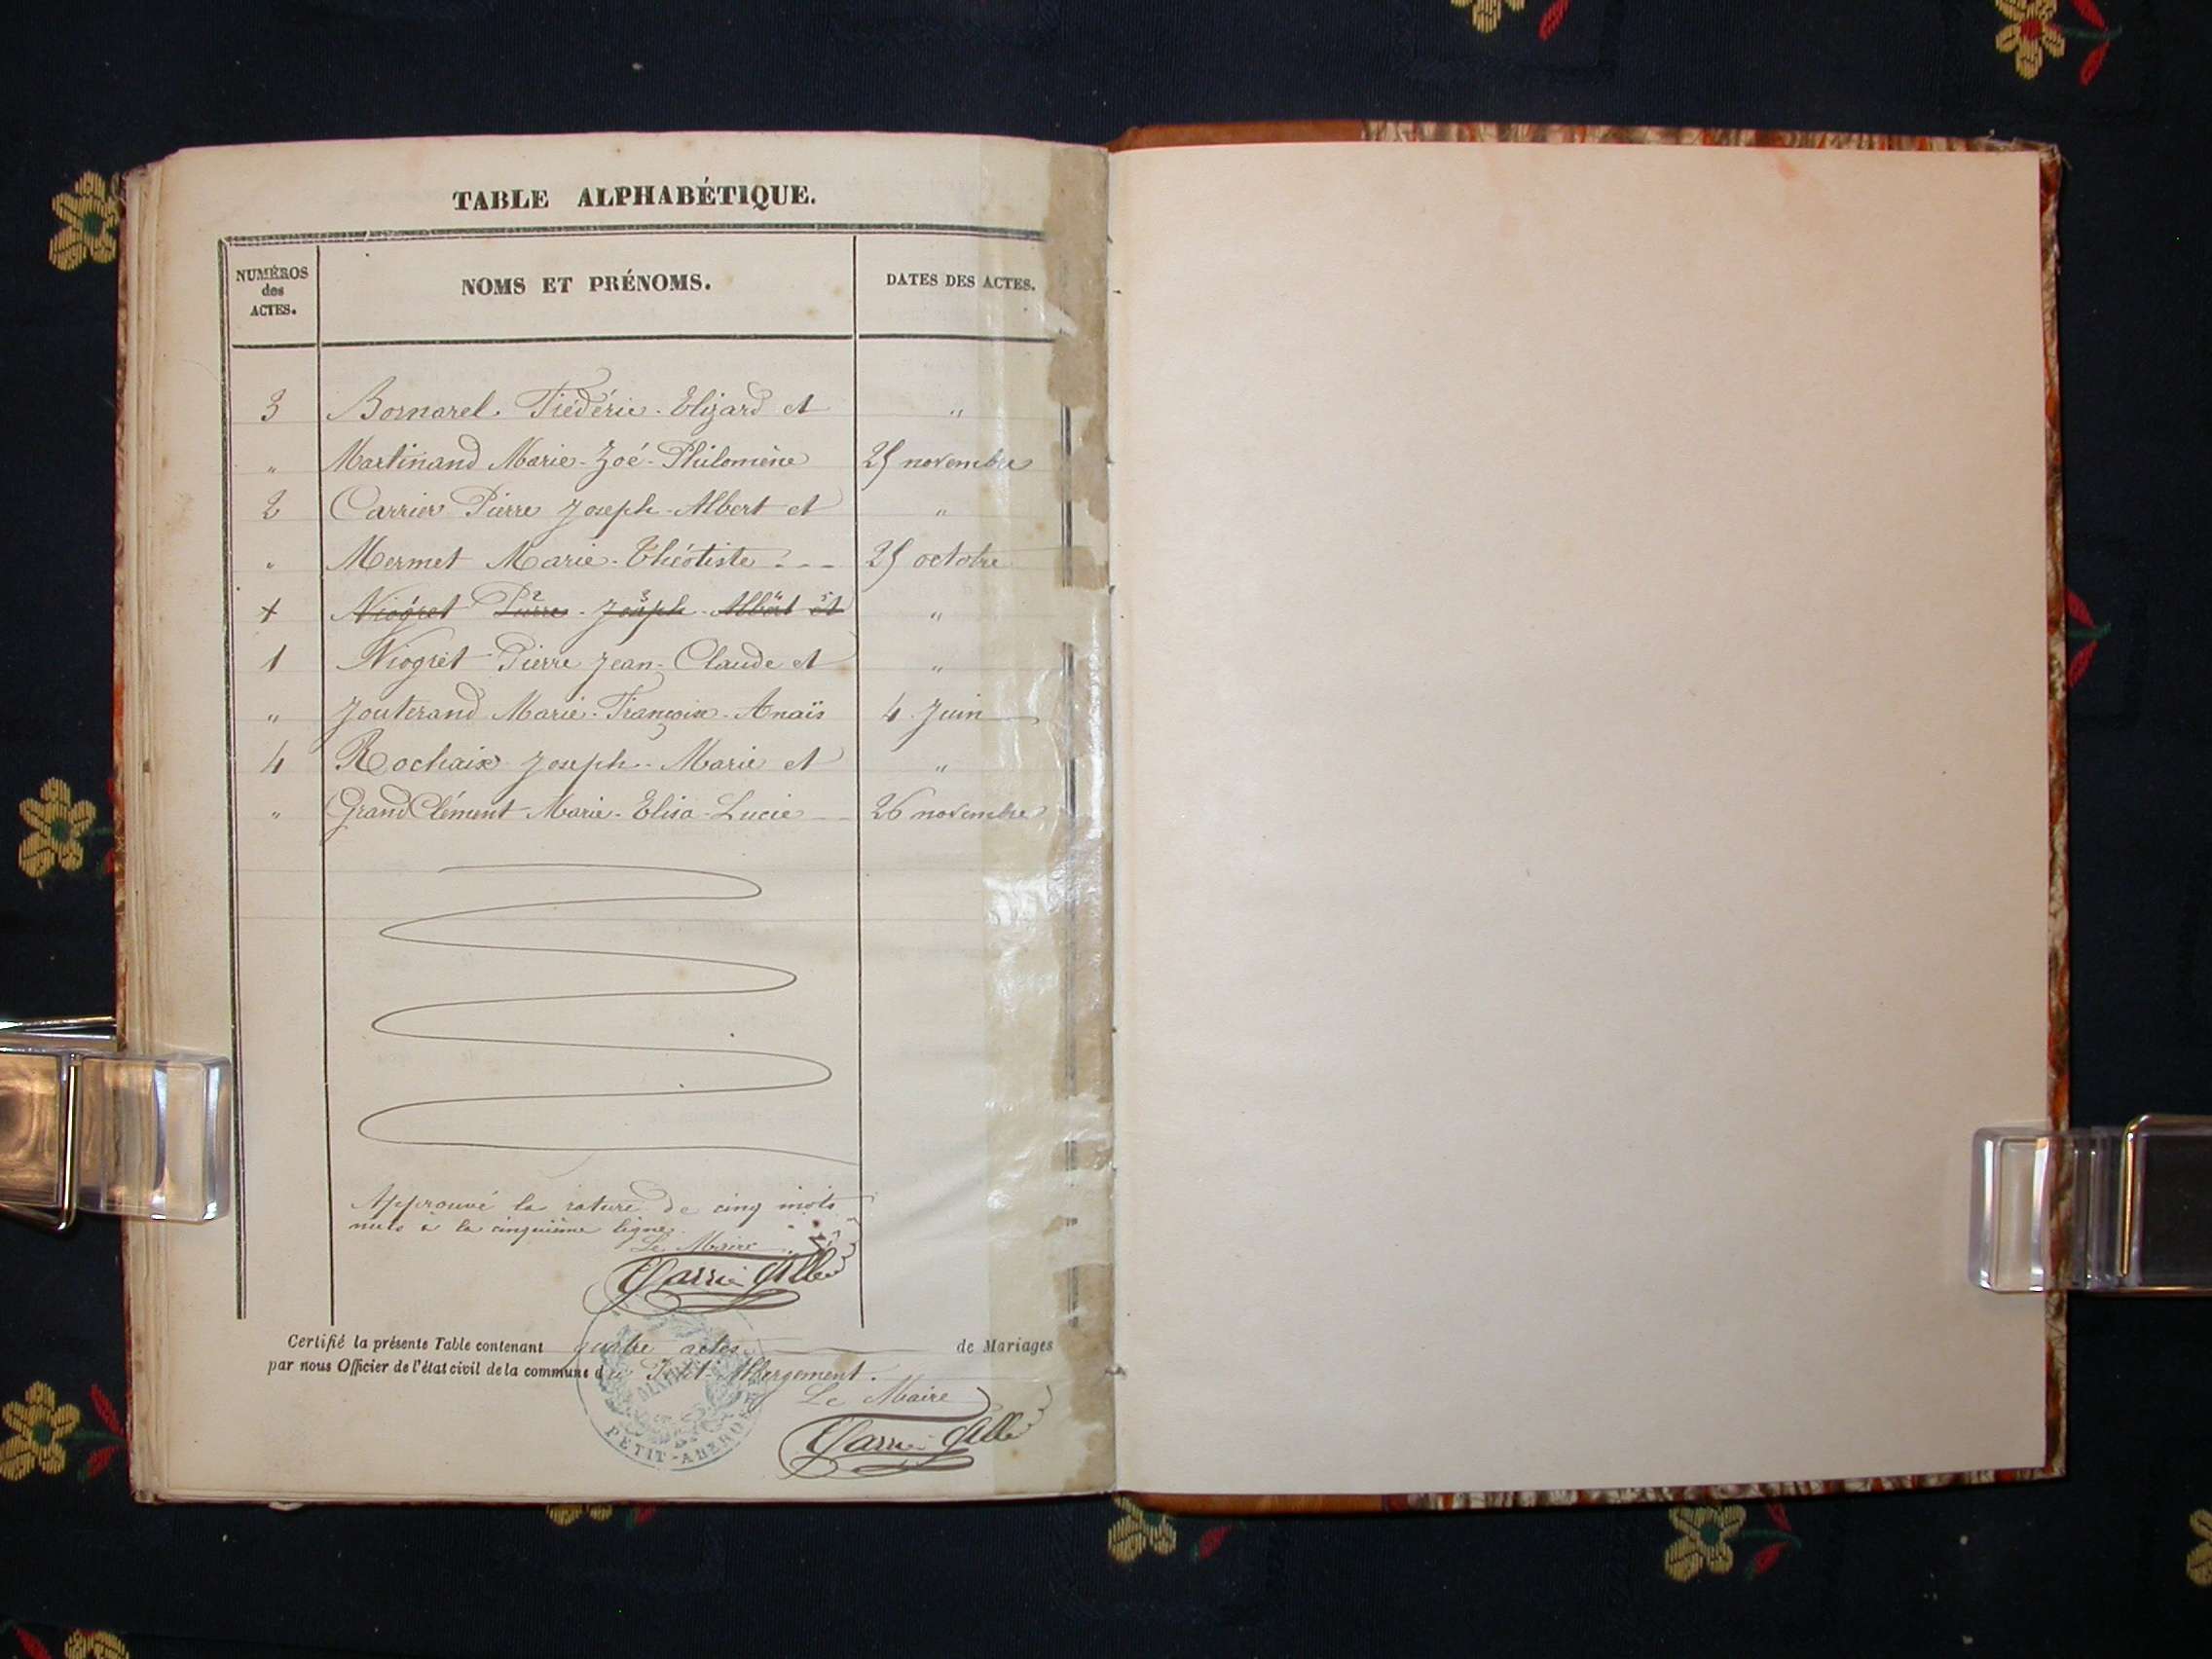 TABLE ALPHABÉTIQUE.
NUMÉROS des ACTES. NOMS ET PRÉNOMS. DATES DES ACTES.
3 Bornarel Frédéric-Elizard et "
" Martinand Marie-Zoé-Philomène 25 novembre
2 Carrier Pierre Joseph-Albert et "
" Mermet Marie-Théotiste - - - 25 octobre
+ Niogret Pierre-Joseph-Albert et "
1 Niogret Pierre Jean-Claude et "
" Jouterand Marie-Françoise-Anaïs 4 Juin
4 Rochaix Joseph-Marie et "
" GrandClément Marie-Elisa-Lucie 26 novembre
Approuvé la rature de cinq mots
nuls à la cinquième ligne.
Le Maire
Certifié la présente Table contenant quatre actes de Mariages
par nous Officier de l'état civil de la commune du Petit-Abergement.
Le Maire
MAIRIE
PETIT-ABERG